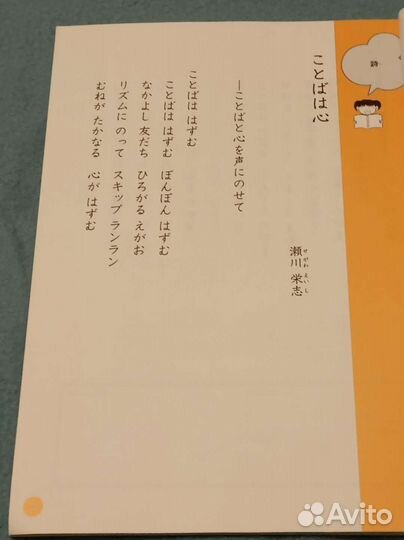 詩
ことばは心
―ことばと心を声にのせて
瀬川 栄志
せがわ えいし
ことばは はずむ
ことばは はずむ ぽんぽん はずむ
なかよし 友だち ひろがる えがお
リズムに のって スキップ ランラン
むねが たかなる 心が はずむ
Avito